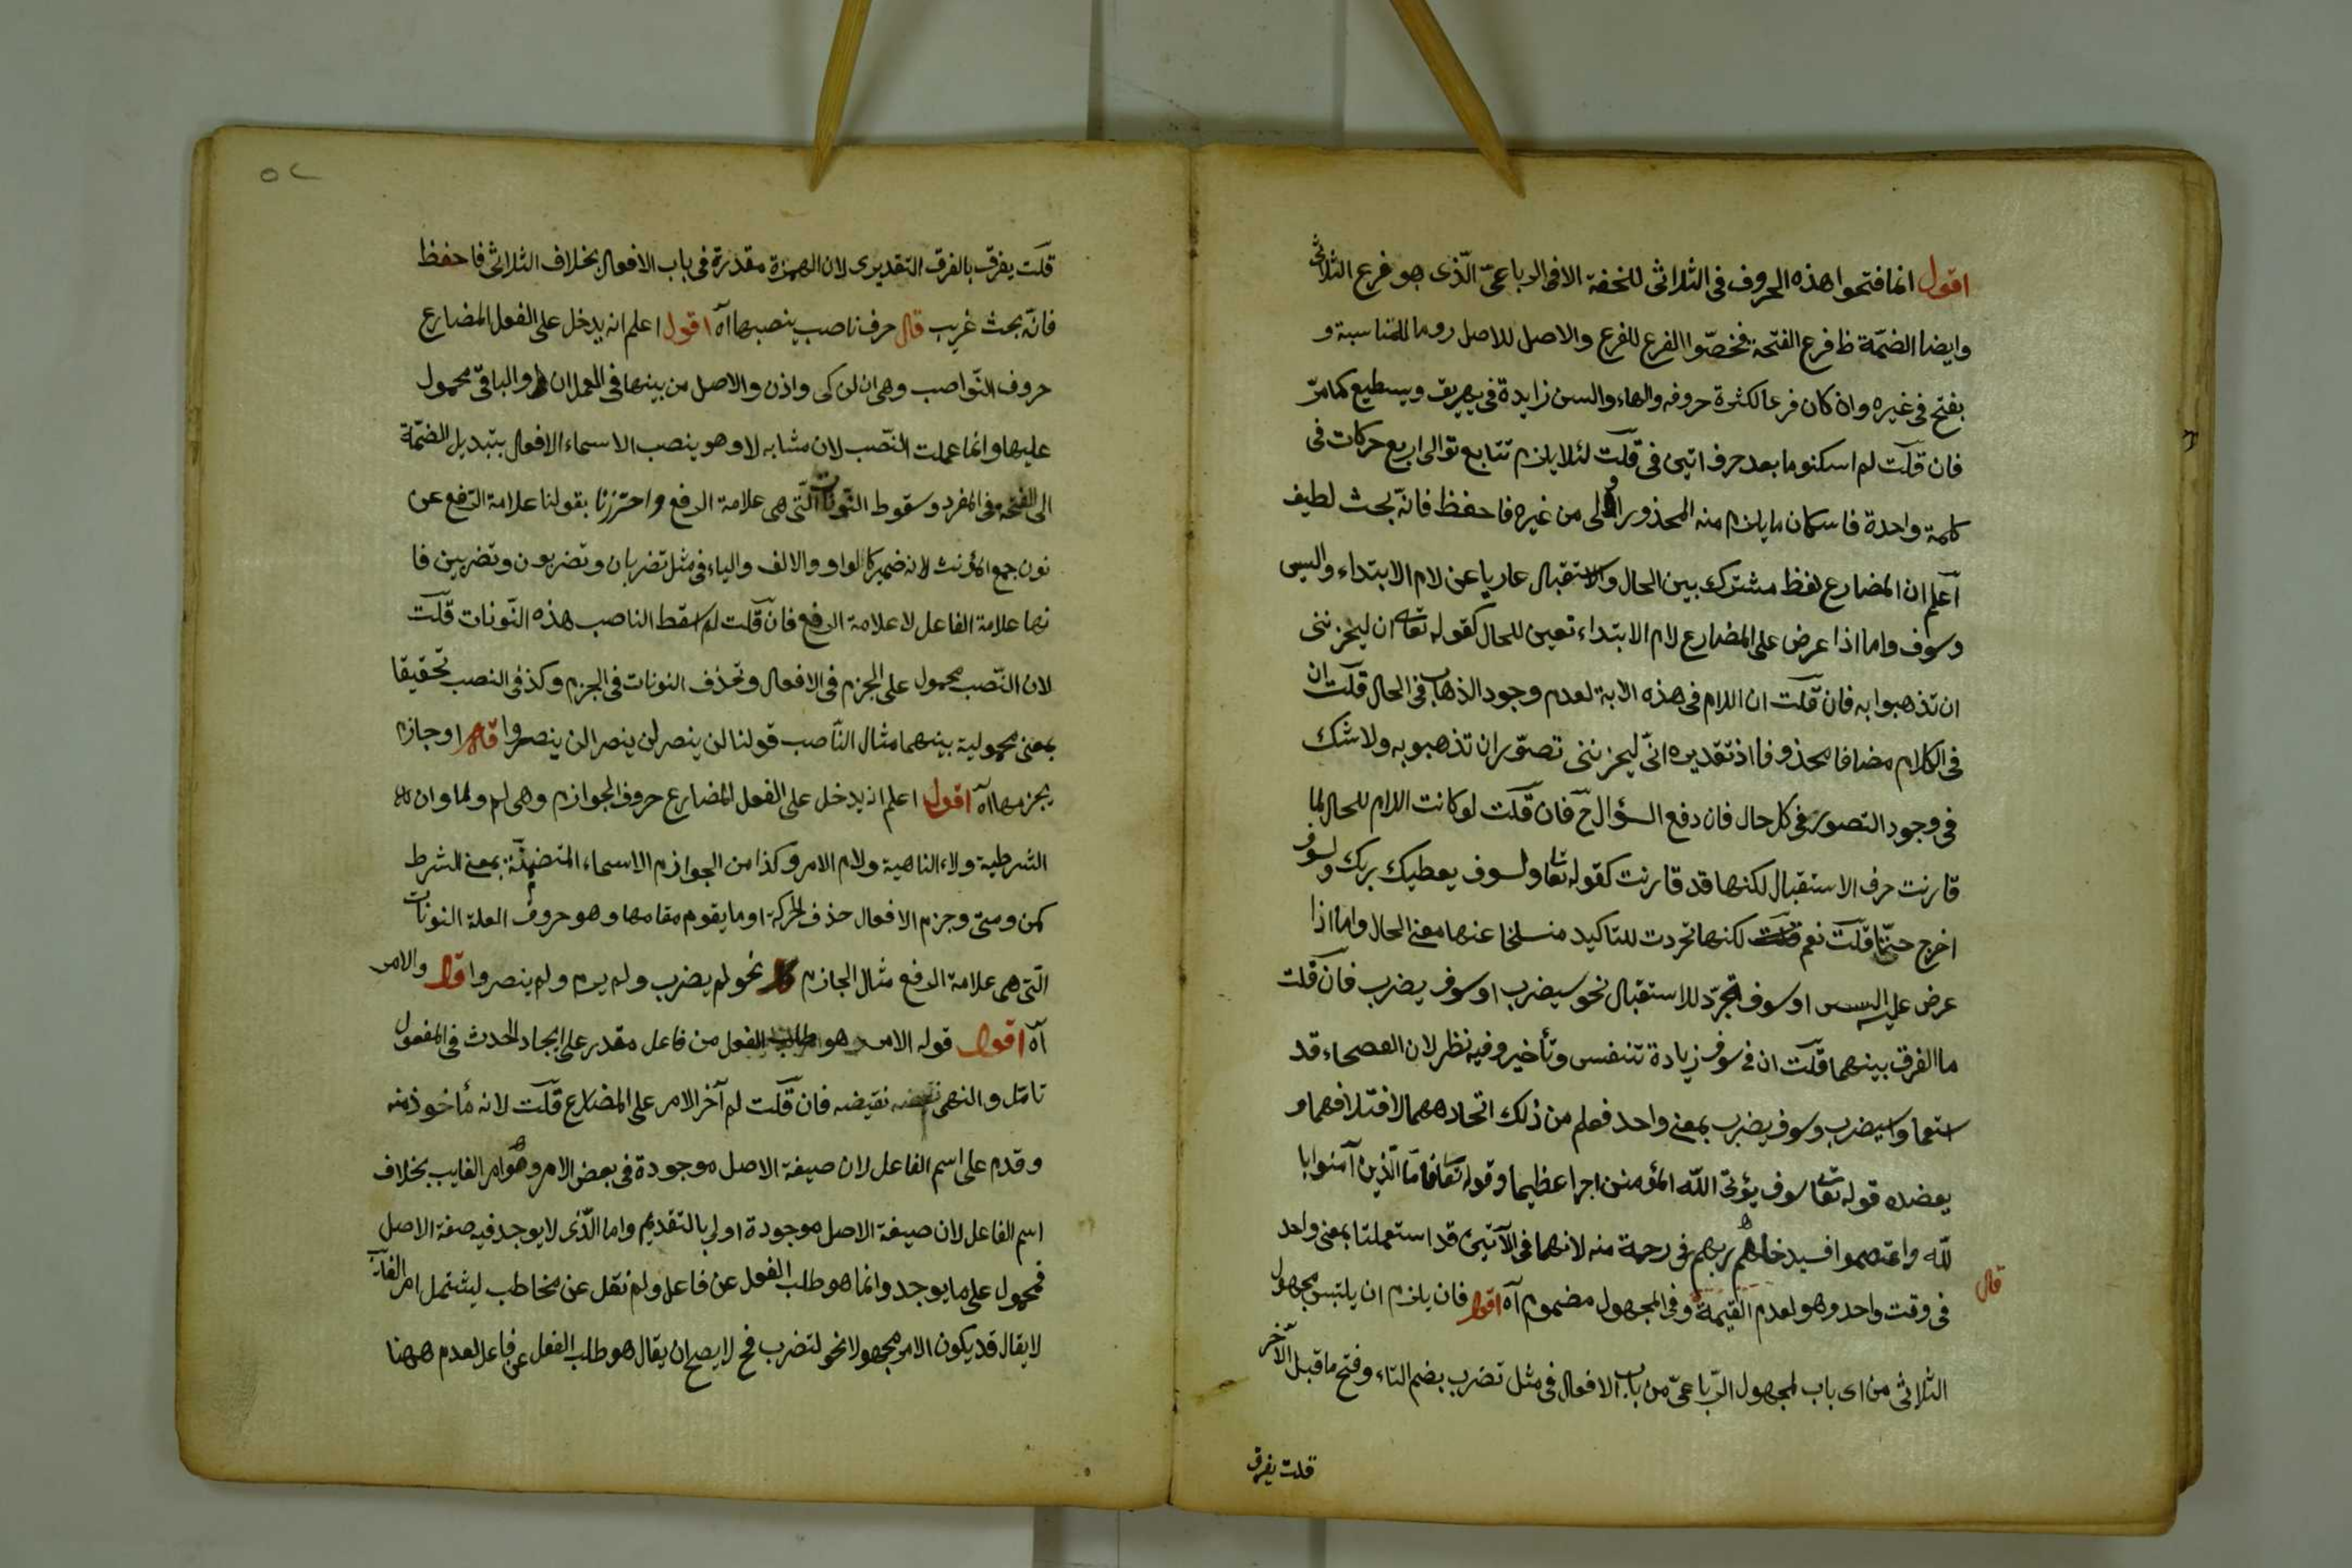 اقول انما فتحوا هذه الحروف فى الثلاثى للخفة الا فى الرباعىّ الّذى هو فرع الثلاثى
وايضا الضمّة ظ فرع الفتحة فخصّوا الفرع للفرع والاصل للاصل روما للمناسبة و
بفتح فى غيره وان كان فرعا لكثرة حروفه والهاء والسن زايدة فى يهريق ويسطيع كما مرّ
فان قلت لم اسكنو ما بعد حرف اتين فى قلت لئلا يلزم تتابع توالى اربع حركات فى
كلمة واحدة فاسكان ما يلزم منه المحذور اولى من غيره فاحفظ فانّه بحث لطيف
اعلم ان المضارع لفظ مشترك بين الحال والاستقبال عاريا عن لام الابتداء والسين
وسوف واما اذا عرض على المضارع لام الابتداء تعين للحال كقوله تعا ان ليحزننى
ان تذهبوا به فان قلت ان اللام فى هذه الاية لعدم وجود الذهاب فى الحال قلت ان
فى الكلام مضافا محذوفا اذ تقديره انّى ليحزننى تصوّر ان تذهبو به ولا شك
فى وجود التصور فى كل حال فان دفع السؤال ح فان قلت لو كانت اللام للحال لما
قارنت حرف الاستقبال لكنها قد قارنت كقوله تعا ولسوف يعطيك ربك ولسوف
اخرج حيّا قلت نعم لكنها تجردت للتاكيد منسلخا عنها معنى الحال واما اذا
عرض عليه السين او سوف تجرّد للاستقبال نحو سيضرب او سوف يضرب فان قلت
ما الفرق بينهما قلت ان فى سوف زيادة تنفس وتأخير وفيه نظر لان الفصحاء قد
استعملوا سيضرب وسوف يضرب بمعنى واحد فعلم من ذلك اتحادهما لافتلافهما و
يعضده قوله تعا سوف يؤتى الله المؤمنين اجرا عظيما وقوله تعا فاما الّذين آمنوا با
لله واعتصموا فسيدخلهم ربهم فى رحمة منه لانهما فى الآتين قد استعملتا بمعنى واحد
قال
فى وقت واحد وهو لعدم القيمة وفى المجهول مضموم آه اقول فان يلزم ان يلتبس مجهول
الثلاثى من اى باب لمجهول الرّباعىّ من باب الافعال فى مثل تضرب بضم التاء وفتح ما قبل الآخر
قلت يفرق
٥٢
قلت يفرق بالفرق التقديرى لان الهمزة مقدرة فى باب الافعال بخلاف الثلاثى فاحفظ
فانّه بحث غريب قال حرف ناصب ينصبها آه اقول اعلم انه يدخل على الفعل المضارع
حروف النّواصب وهى ان لن كى واذن والاصل من بينها فى العمل ان والباقىّ محمول
عليها وانما عملت النّصب لان مشابه لا وهو ينصب الاسماء الافعال بتبديل الضمّة
الى الفتحه فى المفرد وسقوط النّونات الّتى هى علامة الرفع واحترزنا بقولنا علامة الرّفع عن
نون جمع المؤنث لانه ضمير كالواو والالف والياء فى مثل تضربان وتضربون وتضربين فا
نها علامة الفاعل لا علامة الرفع فان قلت لم اسقط الناصب هذه النّونات قلت
لان النّصب محمول على الجزم فى الافعال وتحذف النونات فى الجزم وكذ فى النصب تحقيقا
بمعنى محمولية بينهما مثال النّاصب قولنا لن ينصر لن ينصرا لن ينصروا قال او جازم
يجزمها آه اقول اعلم انه يدخل على الفعل المضارع حروف الجوازم وهى لم ولما وان
الشرطية ولاء الناهية ولام الامر وكذا من الجوازم الاسماء المتضمنة بمعنى الشرط
كمن ومتى وجزم الافعال حذف الحركة او ما يقوم مقامها وهو حروف العلة النونات
الّتى هى علامة الرفع مثال الجازم نحو لم يضرب ولم يرم ولم ينصروا قال والامر
آه اقول قوله الامر هو طلب الفعل من فاعل مقدر على ايجاد الحدث فى المفعول
تامّل والنهى نقيضه فان قلت لم آخر الامر على المضارع قلت لانه مأخوذ منه
وقدم على اسم الفاعل لان صيغة الاصل موجودة فى بعض الامر وهو امر الغايب بخلاف
اسم الفاعل لان صيغة الاصل موجودة اولى بالتقديم واما الّذى لا يوجد فيه صفة الاصل
فمحمول على ما يوجد وانما هو طلب الفعل عن فاعل ولم نقل عن مخاطب ليشتمل امر الغائب
لا يقال قد يكون الامر مجهولا نحو لتضرب فح لا يصح ان يقال هو طلب الفعل عن فاعل لعدم ههنا